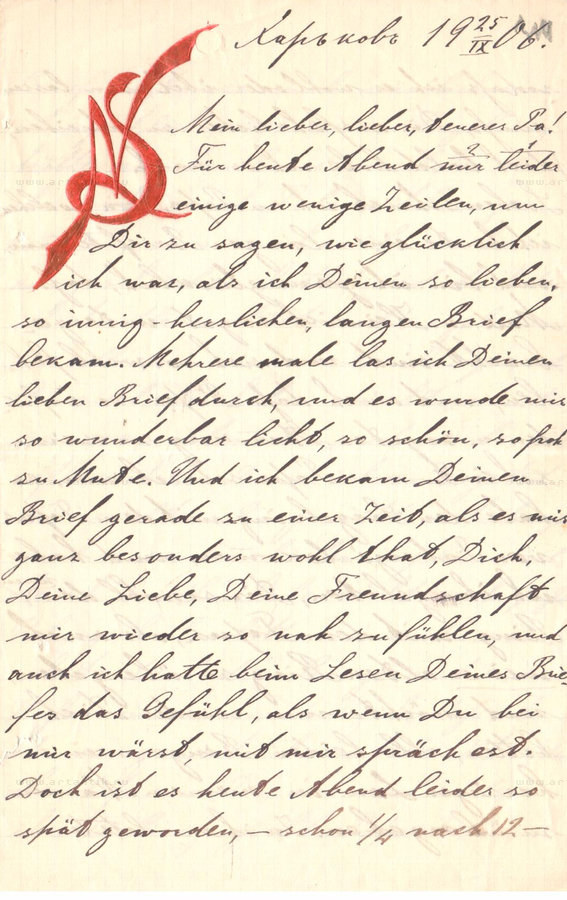 Харьковъ 19 25/IX 06.
Mein lieber, lieber, teurer Pa!
Für heute Abend nur leider
einige wenige Zeilen, um
Dir zu sagen, wie glücklich
ich war, als ich Deinen so lieben,
so innig-herzlichen, langen Brief
bekam. Mehrere male las ich Deinen
lieben Brief durch, und es wurde mir
so wunderbar licht, so schön, so froh
zu Mute. Und ich bekam Deinen
Brief gerade zu einer Zeit, als es mir
ganz besonders wohl that, Dich,
Deine Liebe, Deine Freundschaft
mir wieder so nah zu fühlen, und
auch ich hatte beim Lesen Deines Brie-
fes das Gefühl, als wenn Du bei
mir wärst, mit mir sprächest.
Doch ist es heute Abend leider so
spät geworden, – schon 1/4 nach 12 –